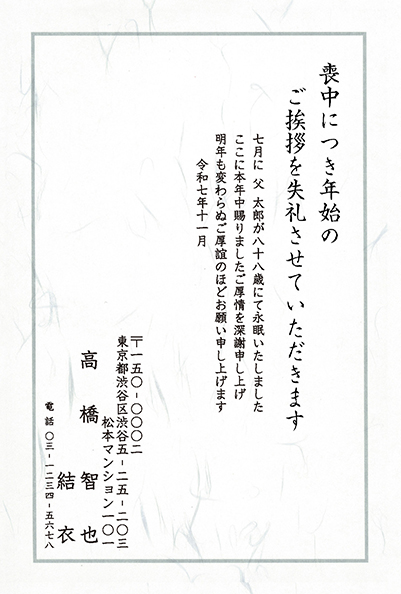 喪中につき年始の
ご挨拶を失礼させていただきます
七月に 父 太郎が八十八歳にて永眠いたしました
ここに本年中賜りましたご厚情を深謝申し上げ
明年も変わらぬご厚誼のほどお願い申し上げます
令和七年十一月
〒一五〇-〇〇〇二
東京都渋谷区渋谷五-二五-二〇三
松本マンション一〇一
高橋智也
結衣
電話 〇三-一二三四-五六七八